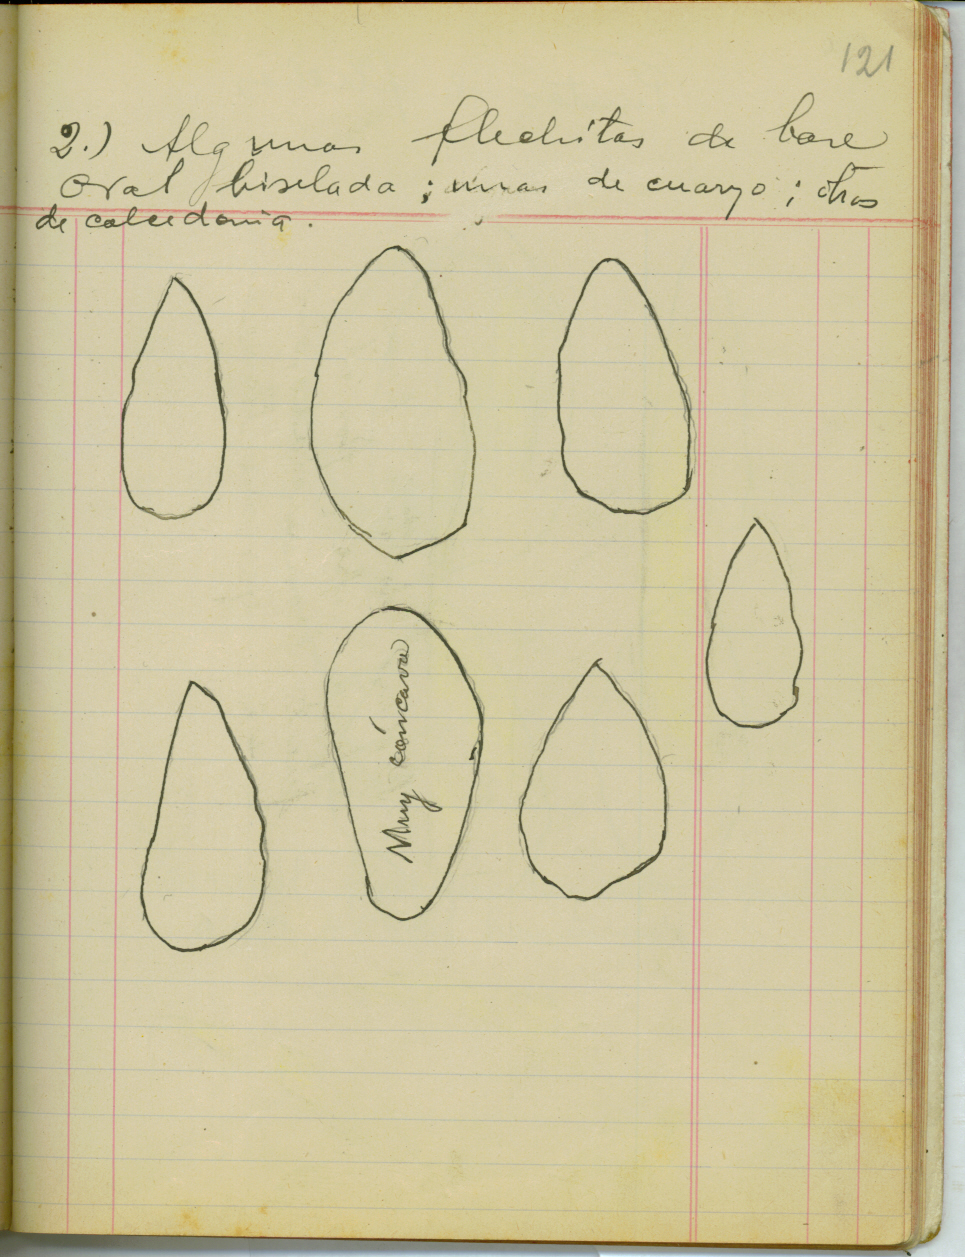 121
2.) Algunas flechitas de base
oval biselada; unas de cuarzo; otras
de calcedonia.
Muy cóncava